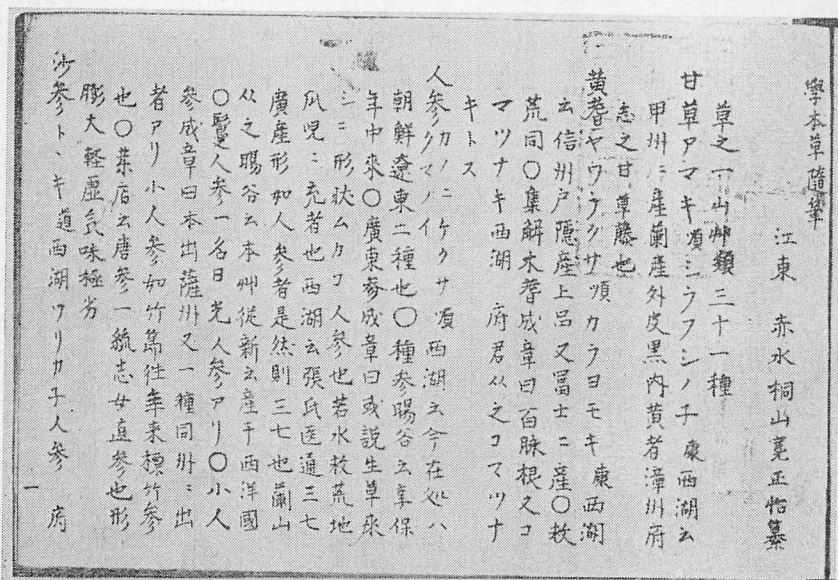 學本草隨筆
江東 赤水桐山寛正怡纂
草之一山艸類三十一種
甘草アマキ 順シラフシノ子 康西湖云
甲州ニ産蘭産外皮黒内黄者漳州府
志之甘草藤也
黄蓍ヤワラクサ 順カラヨモキ 康西湖
云信州戸隠産上品又冨士ニ産〇救
荒同〇集解木蓍成章曰百脉根又コ
マツナキ西湖 府君从之コマツナ
キトス
人参カノニケクサ 順西湖云今在処ハ
クマノイ
朝鮮遼東二種也〇種参晹谷云享保
年中來〇廣東参成章曰或説生草來
ミニ形状ムカコ人参也若水救荒地
瓜児ニ充者也西湖云張氏医通三七
廣産形如人参者是然則三七也蘭山
从之晹谷云本艸從新云産于西洋國
〇鬚人参一名日光人参アリ〇小人
参成章曰本出薩州又一種同州ニ出
者アリ小人参如竹節往年来積竹参
也〇薬店云唐参一統志女直参也形
膨大軽虚氣味極劣
沙参トヽキ 道西湖ツリカ子人参 一 府